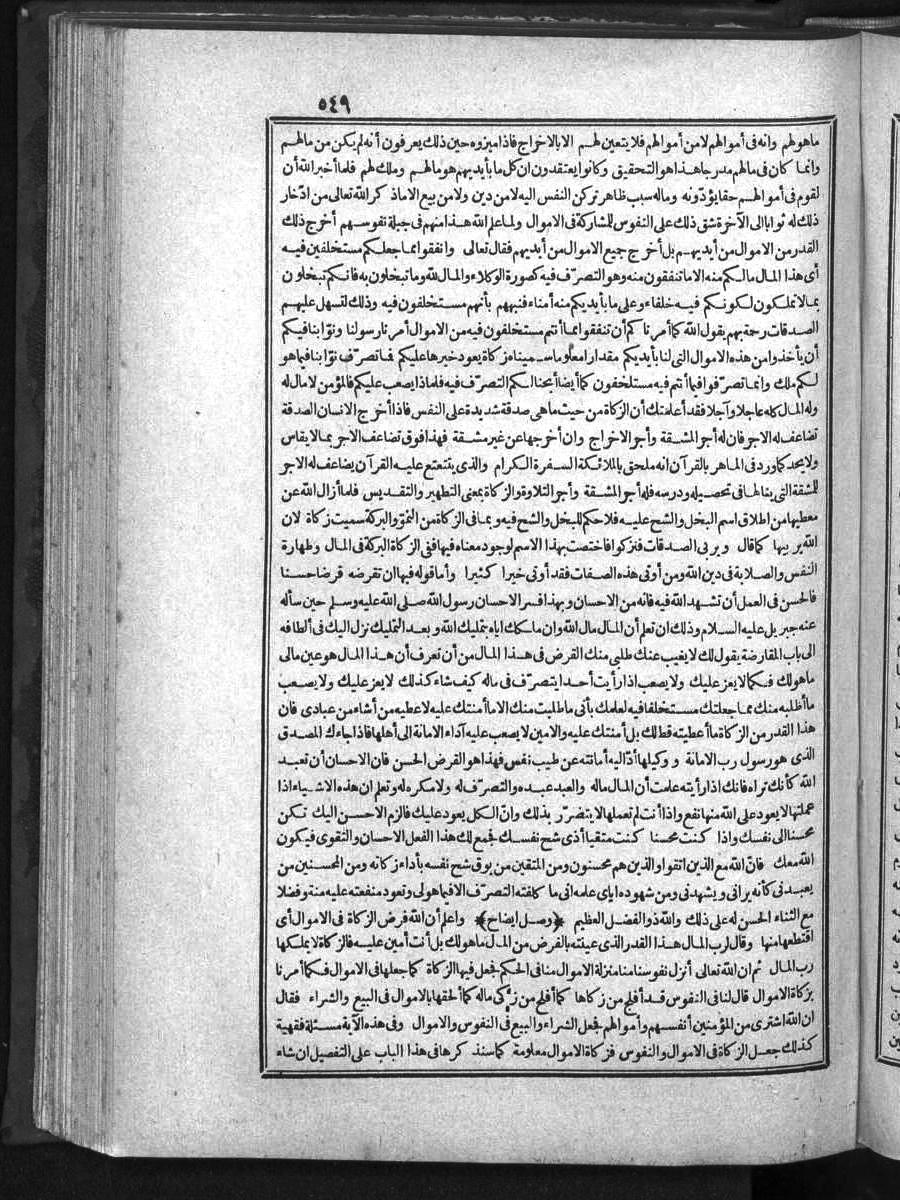 ٥٤٩
ماهولهم وانه فى أموالهم لامن أموالهم فلا يتعين لهم الا بالاخراج فاذا ميزوه حين ذلك يعرفون أنه لم يكن من مالهم
وانما كان فى مالهم مدرجا هذا هو التحقيق وكانوا يعتقدون ان كل ما بأيديهم هو مالهم وملك لهم فلما أخبر الله أن
لقوم فى أموالهم حقا يؤدّونه وماله سبب ظاهر تركن النفس اليه لامن دين ولا من بيع الاماذ كر الله تعالى من ادّخار
ذلك له ثوابا الى الآخرة شق ذلك على النفوس للمشاركة فى الاموال ولما علم الله هذا منهم فى جبلة نفوسهم أخرج ذلك
القدر من الاموال من أيديهم بل أخرج جميع الاموال من أيديهم فقال تعالى وانفقوا مما جعلكم مستخلفين فيه
أى هذا المال مالكم منه الا ما تنفقون منه وهو التصرّف فيه كصورة الوكلاء والمال لله وما تبخلون به فانكم تبخلون
بما لا تملكون لكونكم فيه خلفاء وعلى ما بأيديكم منه أمناء فنبههم بأنهم مستخلفون فيه وذلك لتسهل عليهم
الصدقات رحمة بهم يقول الله كما أمرنا كم أن تنفقوا مما أنتم مستخلفون فيه من الاموال أمرنا رسولنا ونوّابنا فيكم
أن يأخذوا من هذه الاموال التى لنا بأيديكم مقدارا معلوما سميناه زكاة يعود خيرها عليكم فما تصرّف نوّابنا فيما هو
لكم ملك وانما تصرّفوا فيما أنتم فيه مستخلفون كما أيضا أبحنا لكم التصرّف فيه فلماذا يصعب عليكم فالمؤمن لا مال له
وله المال كله عاجلا وآجلا فقد أعلمتك أن الزكاة من حيث ما هى صدقة شديدة على النفس فاذا أخرج الانسان الصدقة
تضاعف له الاجر فان له أجر المشقة وأجر الاخراج وان أخرجها عن غير مشقة فهذا فوق تضاعف الاجر بما لا يقاس
ولا يحد كما ورد فى الماهر بالقرآن انه ملحق بالملائكة السفرة الكرام والذى يتتعتع عليه القرآن يضاعف له الاجر
للمشقة التى ينالها فى تحصيله ودرسه فله أجر المشقة وأجر التلاوة والزكاة بمعنى التطهير والتقديس فلما أزال الله عن
معطيها من اطلاق اسم البخل والشح عليه فلا حكم للبخل والشح فيه وبما فى الزكاة من النموّ والبركة سميت زكاة لان
الله يربيها كما قال ويربى الصدقات فتزكوا فاختصت بهذا الاسم لوجود معناه فيها ففى الزكاة البركة فى المال وطهارة
النفس والصلابة فى دين الله ومن أوتى هذه الصفات فقد أوتى خيرا كثيرا وأما قوله فيها ان تقرضه قرضا حسنا
فالحسن فى العمل أن تشهد الله فيه فانه من الاحسان وبهذا فسر الاحسان رسول الله صلى الله عليه وسلم حين سأله
عنه جبريل عليه السلام وذلك ان تعلم أن المال مال الله وان ملكك اياه بتمليك الله وبعد التمليك نزل اليك فى ألطافه
الى باب المقارضة يقول لك لا يغيب عنك طلبى منك القرض فى هذا المال من أن تعرف أن هذا المال هو عين مالى
ماهو لك فكما لا يعز عليك ولا يصعب اذا رأيت أحدا يتصرّف فى ماله كيف شاء كذلك لا يعز عليك ولا يصعب
ما أطلبه منك مما جعلتك مستخلفا فيه لعلمك بأنى ما طلبت منك الا ما أمنتك عليه لاعطيه من أشاء من عبادى فان
هذا القدر من الزكاة ما أعطيته قط لك بل أمنتك عليه والامين لا يصعب عليه أداء الامانة الى أهلها فاذا جاءك المصدق
الذى هو رسول رب الامانة ووكيلها أدّ اليه أمانته عن طيب نفس فهذا هو القرض الحسن فان الاحسان أن تعبد
الله كأنك تراه فانك اذا رأيته علمت أن المال ماله والعبد عبده والتصرّف له ولا مكره له وتعلم ان هذه الاشياء اذا
عملتها لا يعود على الله منها نفع واذا أنت لم تعملها لا يتضرّر بذلك وانّ الكل يعود عليك فالزم الاحسن اليك تكن
محسنا الى نفسك واذا كنت محسنا كنت متقيا أذى شح نفسك فجمع لك هذا الفعل الاحسان والتقوى فيكون
الله معك فانّ الله مع الذين اتقوا والذين هم محسنون ومن المتقين من يوق شح نفسه بأداء زكاته ومن المحسنين من
يعبدنى كأنه يرانى ويشهدنى ومن شهوده اياى علمه انى ما كلفته التصرّف الا فيما هو لى وتعود منفعته عليه منة وفضلا
مع الثناء الحسن له على ذلك والله ذو الفضل العظيم ﴿وصل ايضاح﴾ واعلم أن الله فرض الزكاة فى الاموال أى
اقتطعها منها وقال لرب المال هذا القدر الذى عينته بالفرض من المال ما هو لك بل أنت أمين عليه فالزكاة لا يملكها
رب المال ثم ان الله تعالى أنزل نفوسنا منا منزلة الاموال منا فى الحكم فجعل فيها الزكاة كما جعلها فى الاموال فكما أمرنا
بزكاة الاموال قال لنا فى النفوس قد أفلح من زكاها كما أفلح من زكى ماله كما ألحقها بالاموال فى البيع والشراء فقال
ان الله اشترى من المؤمنين أنفسهم وأموالهم فجعل الشراء والبيع فى النفوس والاموال وفى هذه الآية مسئلة فقهية
كذلك جعل الزكاة فى الاموال والنفوس فزكاة الاموال معلومة كما سنذ كرها فى هذا الباب على التفصيل ان شاء